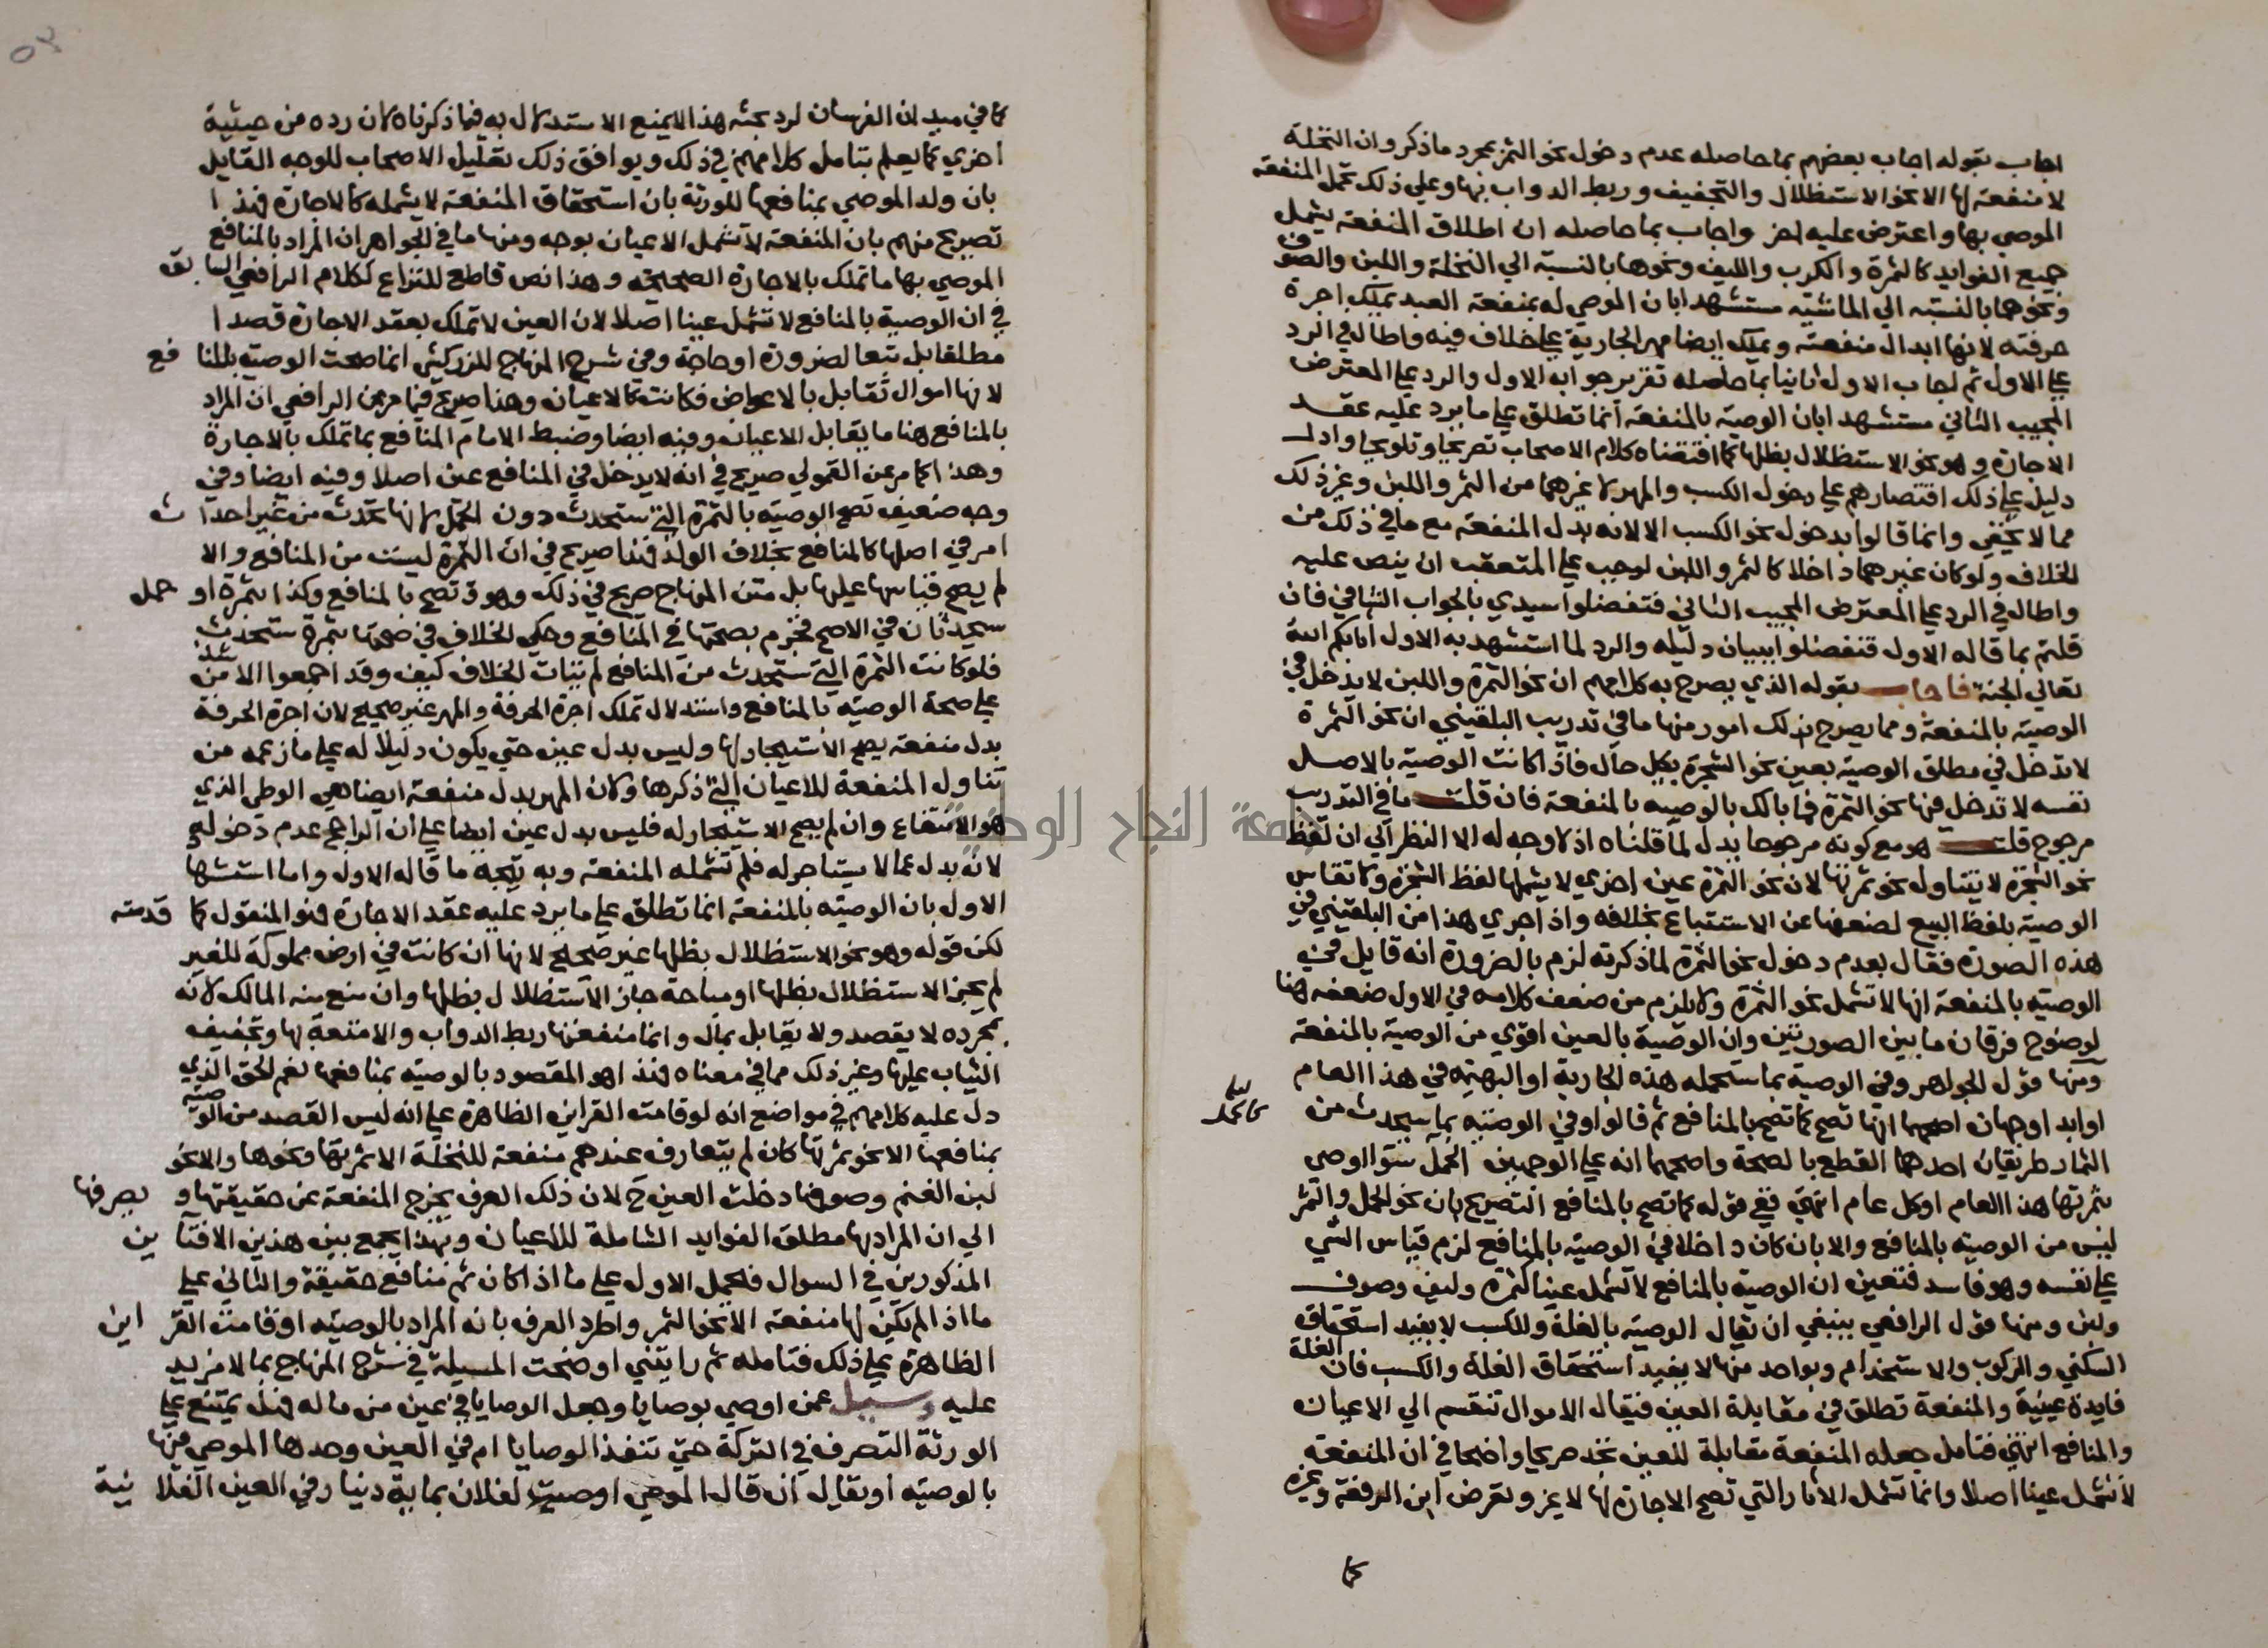 اجاب بقوله اجاب بعضهم بما حاصله عدم دخول نحو الثمر بمجرد ما ذكر وان النخلة
لا منفعة لها الا نحو الاستظلال والتجفيف وربط الدواب بها وعلي ذلك تحمل المنفعة
الموصي بها واعترض عليه اخر واجاب بما حاصله ان اطلاق المنفعة يشمل
جميع الفوايد كالثمرة والكرب والليف ونحوها بالنسبة الي النخلة واللبن والصوف
ونحوهما بالنسبة الي الماشية مستشهدا بان الموصي له بمنفعة العبد يملك اجرة
حرفته لانها ابدال منفعته ويملك ايضا مهر الجارية علي خلاف فيه واطال في الرد
علي الاول ثم اجاب الاول ثانيا بما حاصله تقرير جوابه الاول والرد علي المعترض
المجيب الثاني مستشهدا بان الوصية بالمنفعة انما تطلق علي ما يرد عليه عقد
الاجارة وهو نحو الاستظلال بظلها كما اقتضاه كلام الاصحاب تصريحا وتلويحا وادل
دليل علي ذلك اقتصارهم علي دخول الكسب والمهر لا غيرهما من الثمر واللبن وغير ذلك
مما لا يخفي وانما قالوا بدخول نحو الكسب الا لانه بدل المنفعة مع ما في ذلك من
الخلاف ولو كان غيرهما داخلا كالثمر واللبن لوجب علي المتعقب ان ينص عليه
واطال في الرد علي المعترض المجيب الثاني فتفضلوا سيدي بالجواب الشافي فان
قلتم بما قاله الاول فتفضلوا ببيان دليله والرد لما استشهد به الاول اثابكم الله
تعالي الجنة فاجاب بقوله الذي يصرح به كلامهم ان نحو الثمرة واللبن لا يدخل في
الوصية بالمنفعة ومما يصرح بذلك امور منها ما في تدريب البلقيني ان نحو الثمرة
لا تدخل في مطلق الوصية بعين نحو الشجرة بكل حال فاذا كانت الوصية بالاصل
نفسه لا تدخل فيها نحو الثمرة فما بالك بالوصية بالمنفعة فان قلت ما في التدريب
مرجوح قلت هو مع كونه مرجوحا يدل لما قلناه اذ لا وجه له الا النظر الي ان لفظ
نحو الشجرة لا يتناول نحو ثمرتها لان نحو الثمرة عين اخري لا يشملها لفظ الشجرة ولا تقاس
الوصية بلفظ البيع لضعفها عن الاستتباع بخلافه واذا جري هذا من البلقيني في
هذه الصورة فقال بعدم دخول نحو الثمرة لما ذكرته لزم بالضرورة انه قايل في
الوصية بالمنفعة انها لا تشمل نحو الثمرة ولا يلزم من ضعف كلامه في الاول ضعفه هنا
لوضوح فرقان ما بين الصورتين وان الوصية بالعين اقوي من الوصية بالمنفعة
ومنها قول الجواهر وفي الوصية بما ستحمله هذه الجارية او البهيمة في هذا العام
او ابدا وجهان اصحهما انها تصح كما تصح بالمنافع ثم قالوا وفي الوصية بما سيحدث من
الثمار طريقان احدهما القطع بالصحة واصحهما انه علي الوجهين الحمل سوا اوصي
بثمرتها هذا العام او كل عام انتهي ففي قوله كما تصح بالمنافع التصريح بان نحو الحمل والثمر
ليس من الوصية بالمنافع والا بان كان داخلا في الوصية بالمنافع لزم قياس الشي
علي نفسه وهو فاسد فتعين ان الوصية بالمنافع لا تشمل عينا كثمرة وليف وصوف
ولبن ومنها قول الرافعي ينبغي ان يقال الوصية بالغلة والكسب لا يفيد استحقاق
السكني والركوب والاستخدام وبواحد منها لا يفيد استحقاق الغلة والكسب فان الغلة
فايدة عينية والمنفعة تطلق في مقابلة العين فيقال الاموال تنقسم الي الاعيان
والمنافع انتهي فتامل جعله المنفعة مقابلة للعين تجد صريحا واضحا في ان المنفعة
لا تشمل عينا اصلا وانما تشمل الاثار التي تصح الاجارة لها لا غير وتعرض ابن الرفعة وغيره
كما
كما في ميدان الفرسان لرد بحثه هذا لا يمنع الاستدلال به فيما ذكرناه لان رده من حيثية
اخري كما يعلم بتامل كلامهم في ذلك ويوافق ذلك تعليل الاصحاب للوجه القايل
بان ولد الموصي بمنافعها للورثة بان استحقاق المنفعة لا يشمله كالاجارة فهذا
تصريح منهم بان المنفعة لا تشمل الاعيان بوجه ومنها ما في الجواهر ان المراد بالمنافع
الموصي بها ما تملك بالاجارة الصحيحة وهذا نص قاطع للنزاع لكلام الرافعي السابق
في ان الوصية بالمنافع لا تشمل عينا اصلا لان العين لا تملك بعقد الاجارة قصدا
مطلقا بل تبعا لضرورة او حاجة وفي شرح المنهاج للزركشي انما صحت الوصية بالمنافع
لانها اموال تقابل بالاعواض فكانت كالاعيان وهذا صريح فيما مر عن الرافعي ان المراد
بالمنافع هنا ما يقابل الاعيان وفيه ايضا وضبط الامام المنافع بما تملك بالاجارة
وهذا كما مر عن القمولي صريح في انه لا يدخل في المنافع عين اصلا وفيه ايضا وفي
وجه ضعيف تصح الوصية بالثمرة التي ستحدث دون الحمل لانها تحدث من غير احداث
امر في اصلها كالمنافع بخلاف الولد فهذا صريح في ان الثمرة ليست من المنافع والا
لم يصح قياسها عليها بل متن المنهاج صريح في ذلك وهو وتصح بالمنافع وكذا بثمرة او حمل
سيحدثان في الاصح فجزم بصحتها في المنافع وحكي الخلاف في صحتها بثمرة ستحدث
فلو كانت الثمرة التي ستحدث من المنافع لم يتات الخلاف كيف وقد اجمعوا الا من شذ
علي صحة الوصية بالمنافع واستدلال تملك اجرة الحرفة والمهر غير صحيح لان اجرة الحرفة
بدل منفعة يصح الاستيجار لها وليس بدل عين حتي يكون دليلا له علي ما زعمه من
تناول المنفعة للاعيان التي ذكرها ولان المهر بدل منفعة ايضا هي الوطي الذي
هو الانتفاع وان لم يصح الاستيجار له فليس بدل عين ايضا علي ان الراجح عدم دخوله
لانه بدل عما لا يستاجر له فلم تشمله المنفعة وبه يتجه ما قاله الاول واما استشهاد
الاول بان الوصية بالمنفعة انما تطلق علي ما يرد عليه عقد الاجارة فهو المنقول كما قدمته
لكن قوله وهو نحو الاستظلال بظلها غير صحيح لانها ان كانت في ارض مملوكة للغير
لم يجز الاستظلال بظلها او مباحة جاز الاستظلال بظلها وان منع منه المالك لانه
بمجرده لا يقصد ولا يقابل بمال وانما منفعتها ربط الدواب والامتعة بها وتجفيف
الثياب عليها وغير ذلك مما في معناه فهذا هو المقصود بالوصية بمنافعها نعم الحق الذي
دل عليه كلامهم في مواضع انه لو قامت القراين الظاهرة علي انه ليس القصد من الوصية
بمنافعها الا نحو ثمرتها كان لم يتعارف عندهم منفعة للنخلة الا ثمرتها ونحوها والا نحو
لبن الغنم وصوفها دخلت العين ح لان ذلك العرف يخرج المنفعة عن حقيقتها ويصرفها
الي ان المراد بها مطلق الفوايد الشاملة للاعيان وبهذا يجمع بين هذين الافتاين
المذكورين في السوال فيحمل الاول علي ما اذا كان ثم منافع حقيقة والثاني علي
ما اذا لم تكن لها منفعة الا نحو الثمر واطرد العرف بانه المراد بالوصية او قامت القراين
الظاهرة علي ذلك فتامله ثم رايتني اوضحت المسيلة في شرح المنهاج بما لا مزيد
عليه وسيل عمن اوصي بوصايا وجعل الوصايا في عين من ماله فهل يمتنع علي
الورثة التصرف في التركة حتي تنفذ الوصايا ام في العين وحدها الموصي فيها
بالوصية او يقال ان قال الموصي اوصيت لفلان بماية دينار في العين الفلانية